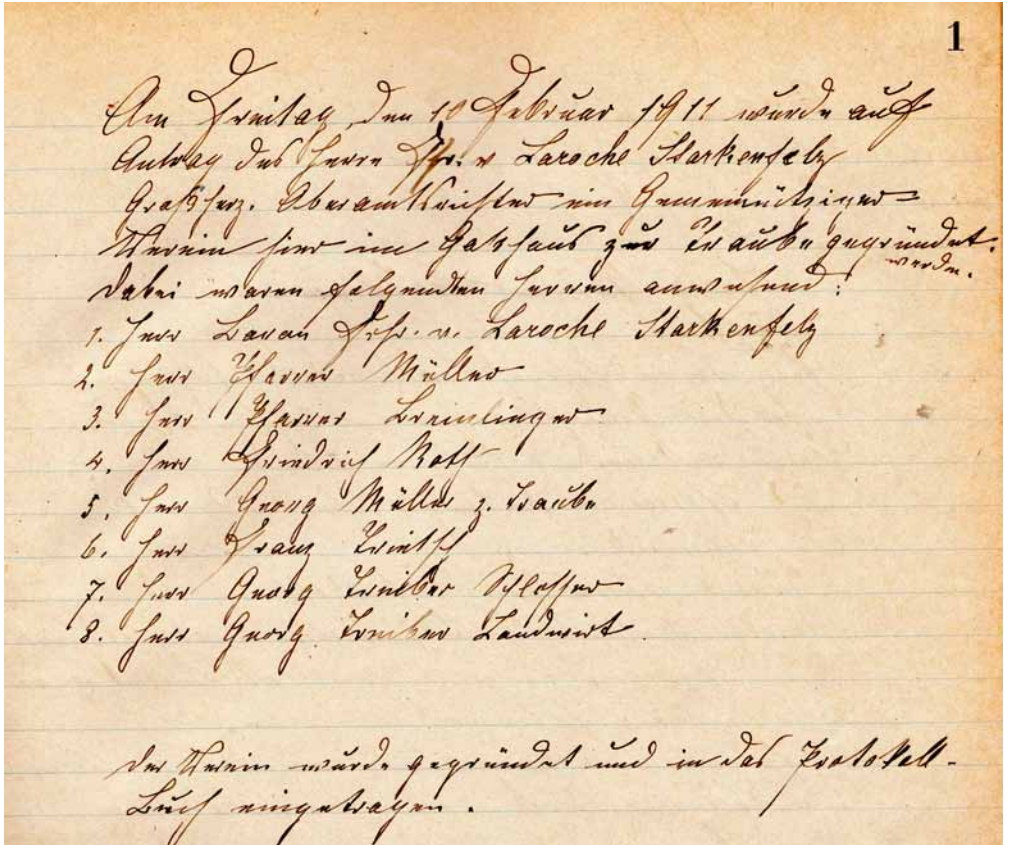 1
Am Freitag, den 10 Februar 1911 wurde auf
Antrag des Herrn Frhr. v Laroche Starkenfelz
Großherz. Oberamtsrichter ein Gemeinnütziger=
Verein hier im Gasthaus zur Traube gegründet.
werde.
Dabei waren folgendten Herren anwesend:
1. Herr Baron Frhr. v. Laroche Starkenfelz
2. Herr Pfarrer Müller
3. Herr Pfarrer Breinlinger
4. Herr Friedrich Roth
5. Herr Georg Müller z. Traube
6. Herr Franz Trietsch
7. Herr Georg Treiber Schlosser
8. Herr Georg Treiber Landwirt
Der Verein wurde gegründet und in das Protokoll-
Buch eingetragen.